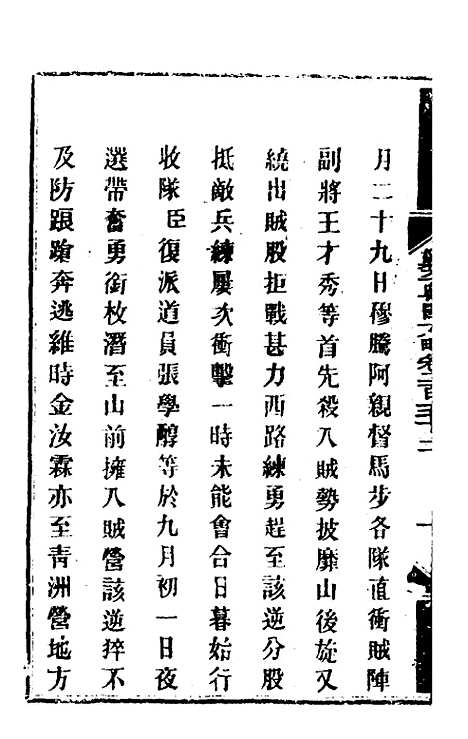 月二十九日穆騰阿親督馬步各隊直衝賊陣
副將王才秀等首先殺入賊勢披靡山後旋又
繞出賊股拒戰甚力西路練勇趕至該逆分股
抵敵兵練屢次衝擊一時未能會合日暮始行
收隊臣復派道員張學醇等於九月初一日夜
選帶奮勇銜枚潛至山前擁入賊營該逆猝不
及防踉蹌奔逃維時金汝霖亦至青洲營地方